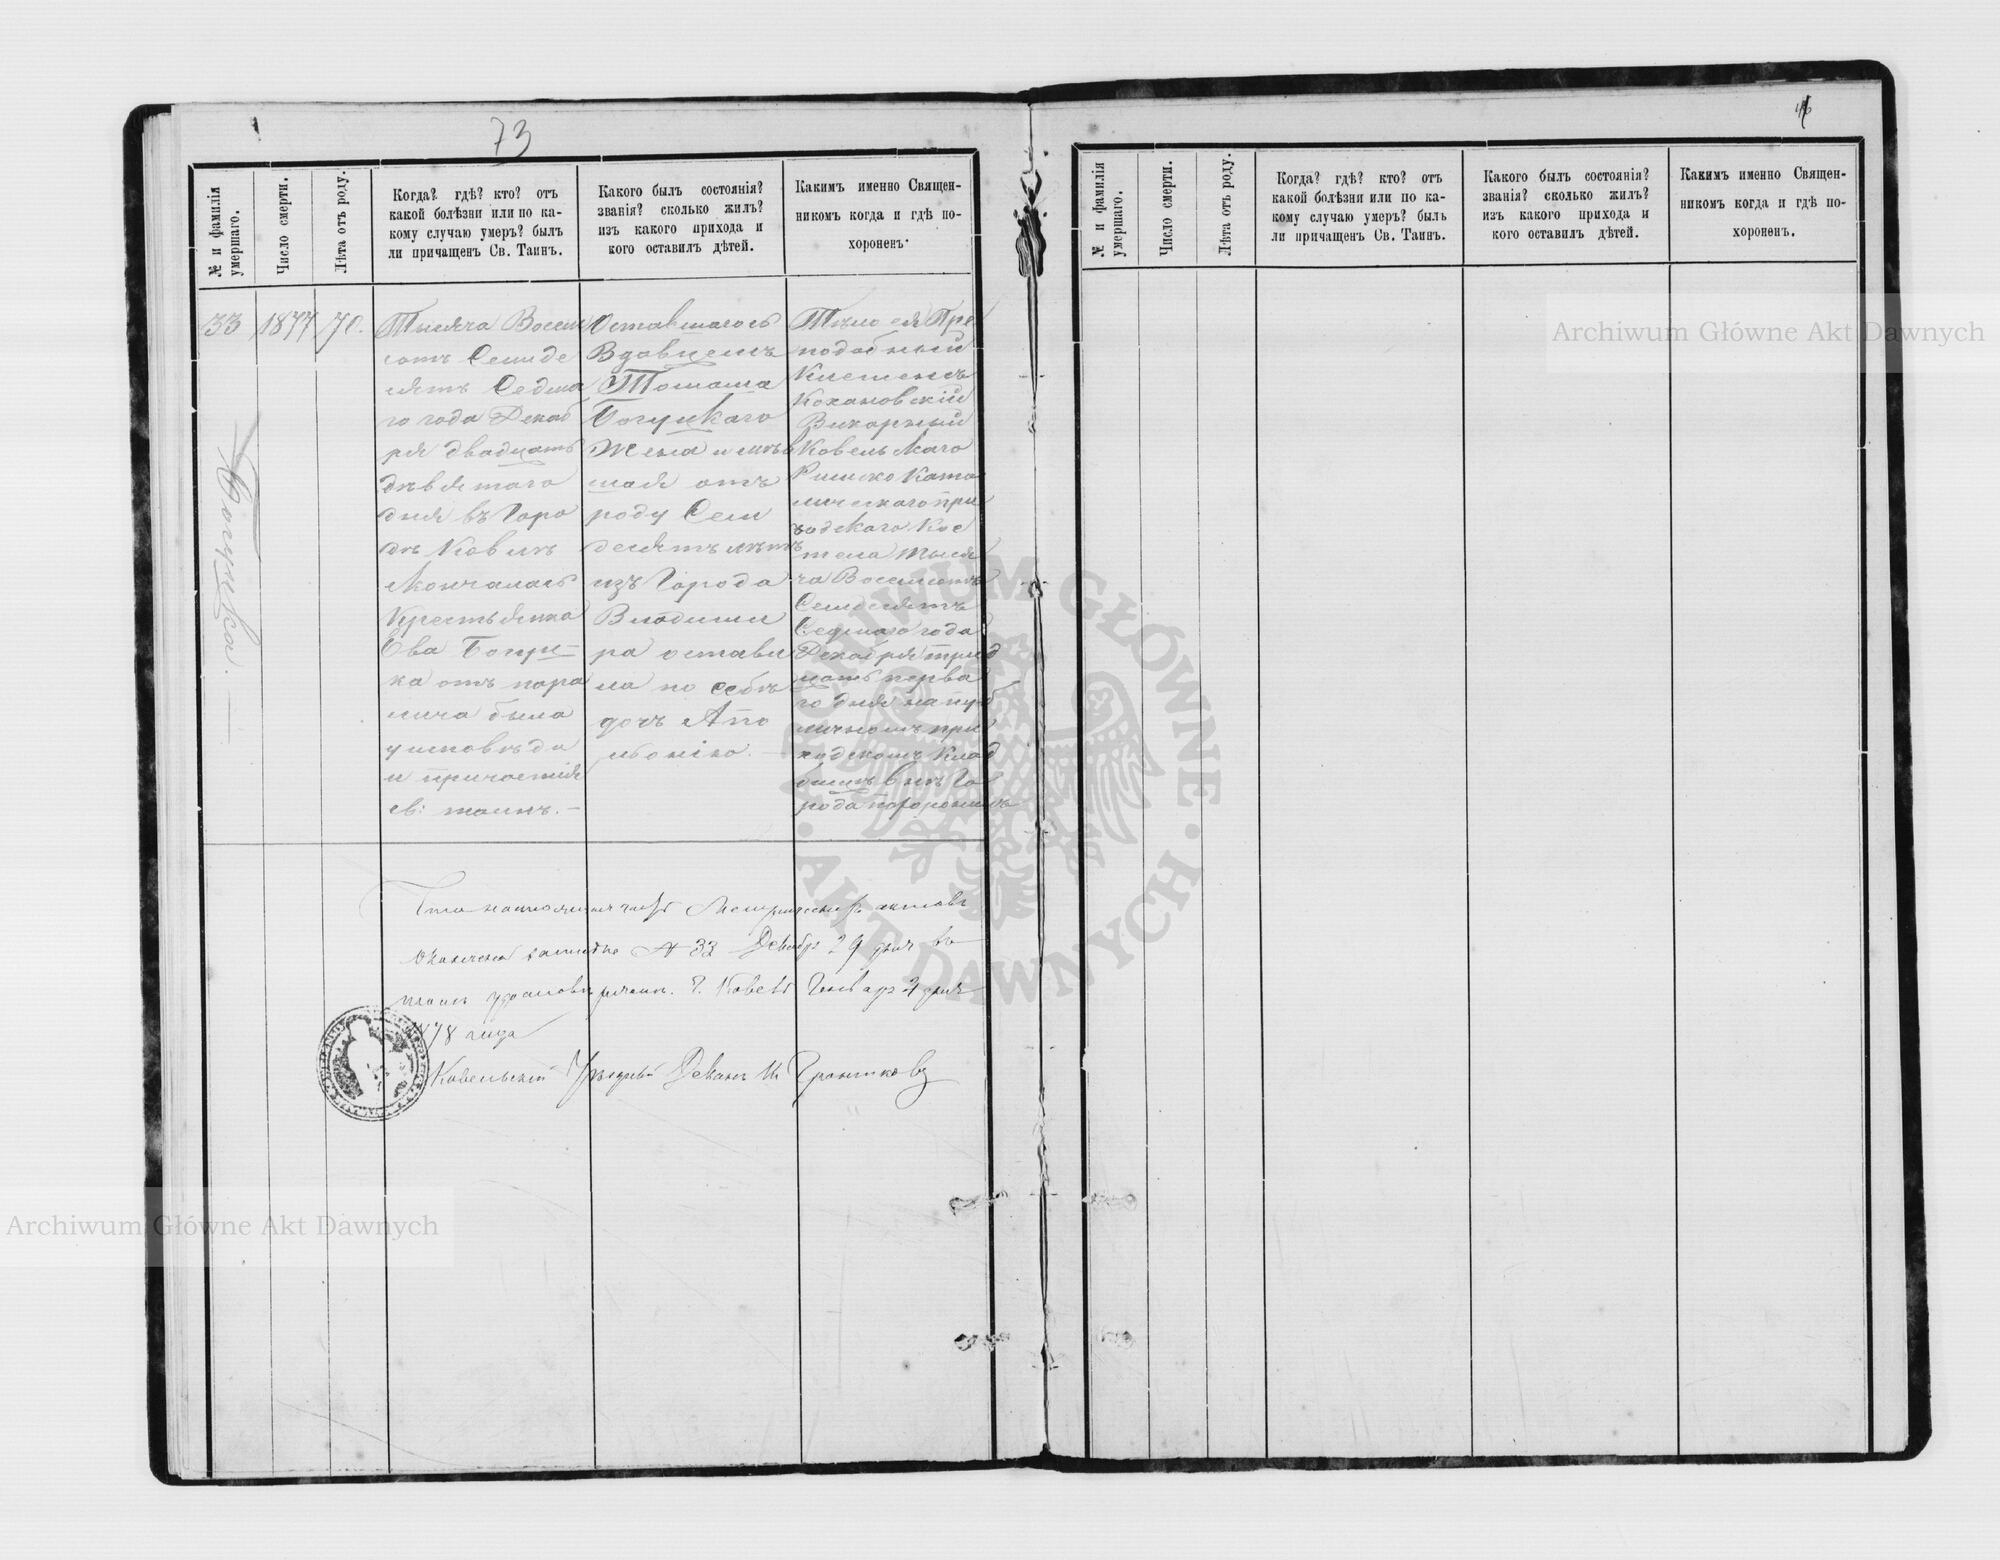 73
№ и фамилія умершаго.
Число смерти.
Лѣта отъ роду.
Когда? гдѣ? кто? отъ
какой болѣзни или по ка-
кому случаю умеръ? былъ
ли причащенъ Св. Таинъ.
Какого былъ состоянія?
званія? сколько жилъ?
изъ какого прихода и
кого оставилъ дѣтей.
Каким именно Священ-
никомъ когда и гдѣ по-
хороненъ.
33
Богуцка. —
1877
70.
Тысяча Восем
сотъ Семьде
сятъ Седма
го года Декаб
ря двадцать
девятаго
дня въ Горо
дѣ Ковлѣ
скончалась
Крестьянка
Ева Богуц-
ка отъ пара
лича была
у исповѣди
и причастія
св: таинъ. —
Оставшагося
Вдовцемъ
Томаша
Богуцкаго
Жена имѣв
шая отъ
роду Сем
десятъ лѣтъ
изъ Города
Владими
ра остави
ла по себѣ
дочь Апо
лонію. —
Тѣло ея Пре
подобный
Клеменсъ
Кохановскій
Викарный
Ковельскаго
Римско Като
лическаго при
ходскаго Кос
тела тыся
ча Восемсотъ
Семдесятъ
Седмаго года
Декабря трид
цать перва
го дня на пуб
личномъ при
ходскомъ Клад
бищѣ внѣ Го
рода похоронилъ
№ 33 Декабр 29 дня въ
томъ г. Ковель Генваря 2 дня
1878 года
Ковельскій Уѣздный Деканъ
46
№ и фамилія умершаго.
Число смерти.
Лѣта отъ роду.
Когда? гдѣ? кто? отъ
какой болѣзни или по ка-
кому случаю умеръ? былъ
ли причащенъ Св. Таинъ.
Какого былъ состоянія?
званія? сколько жилъ?
изъ какого прихода и
кого оставилъ дѣтей.
Каким именно Священ-
никомъ когда и гдѣ по-
хороненъ.
Archiwum Główne Akt Dawnych
Archiwum Główne Akt Dawnych
ARCHIWUM GŁÓWNE · AKT DAWNYCH ·